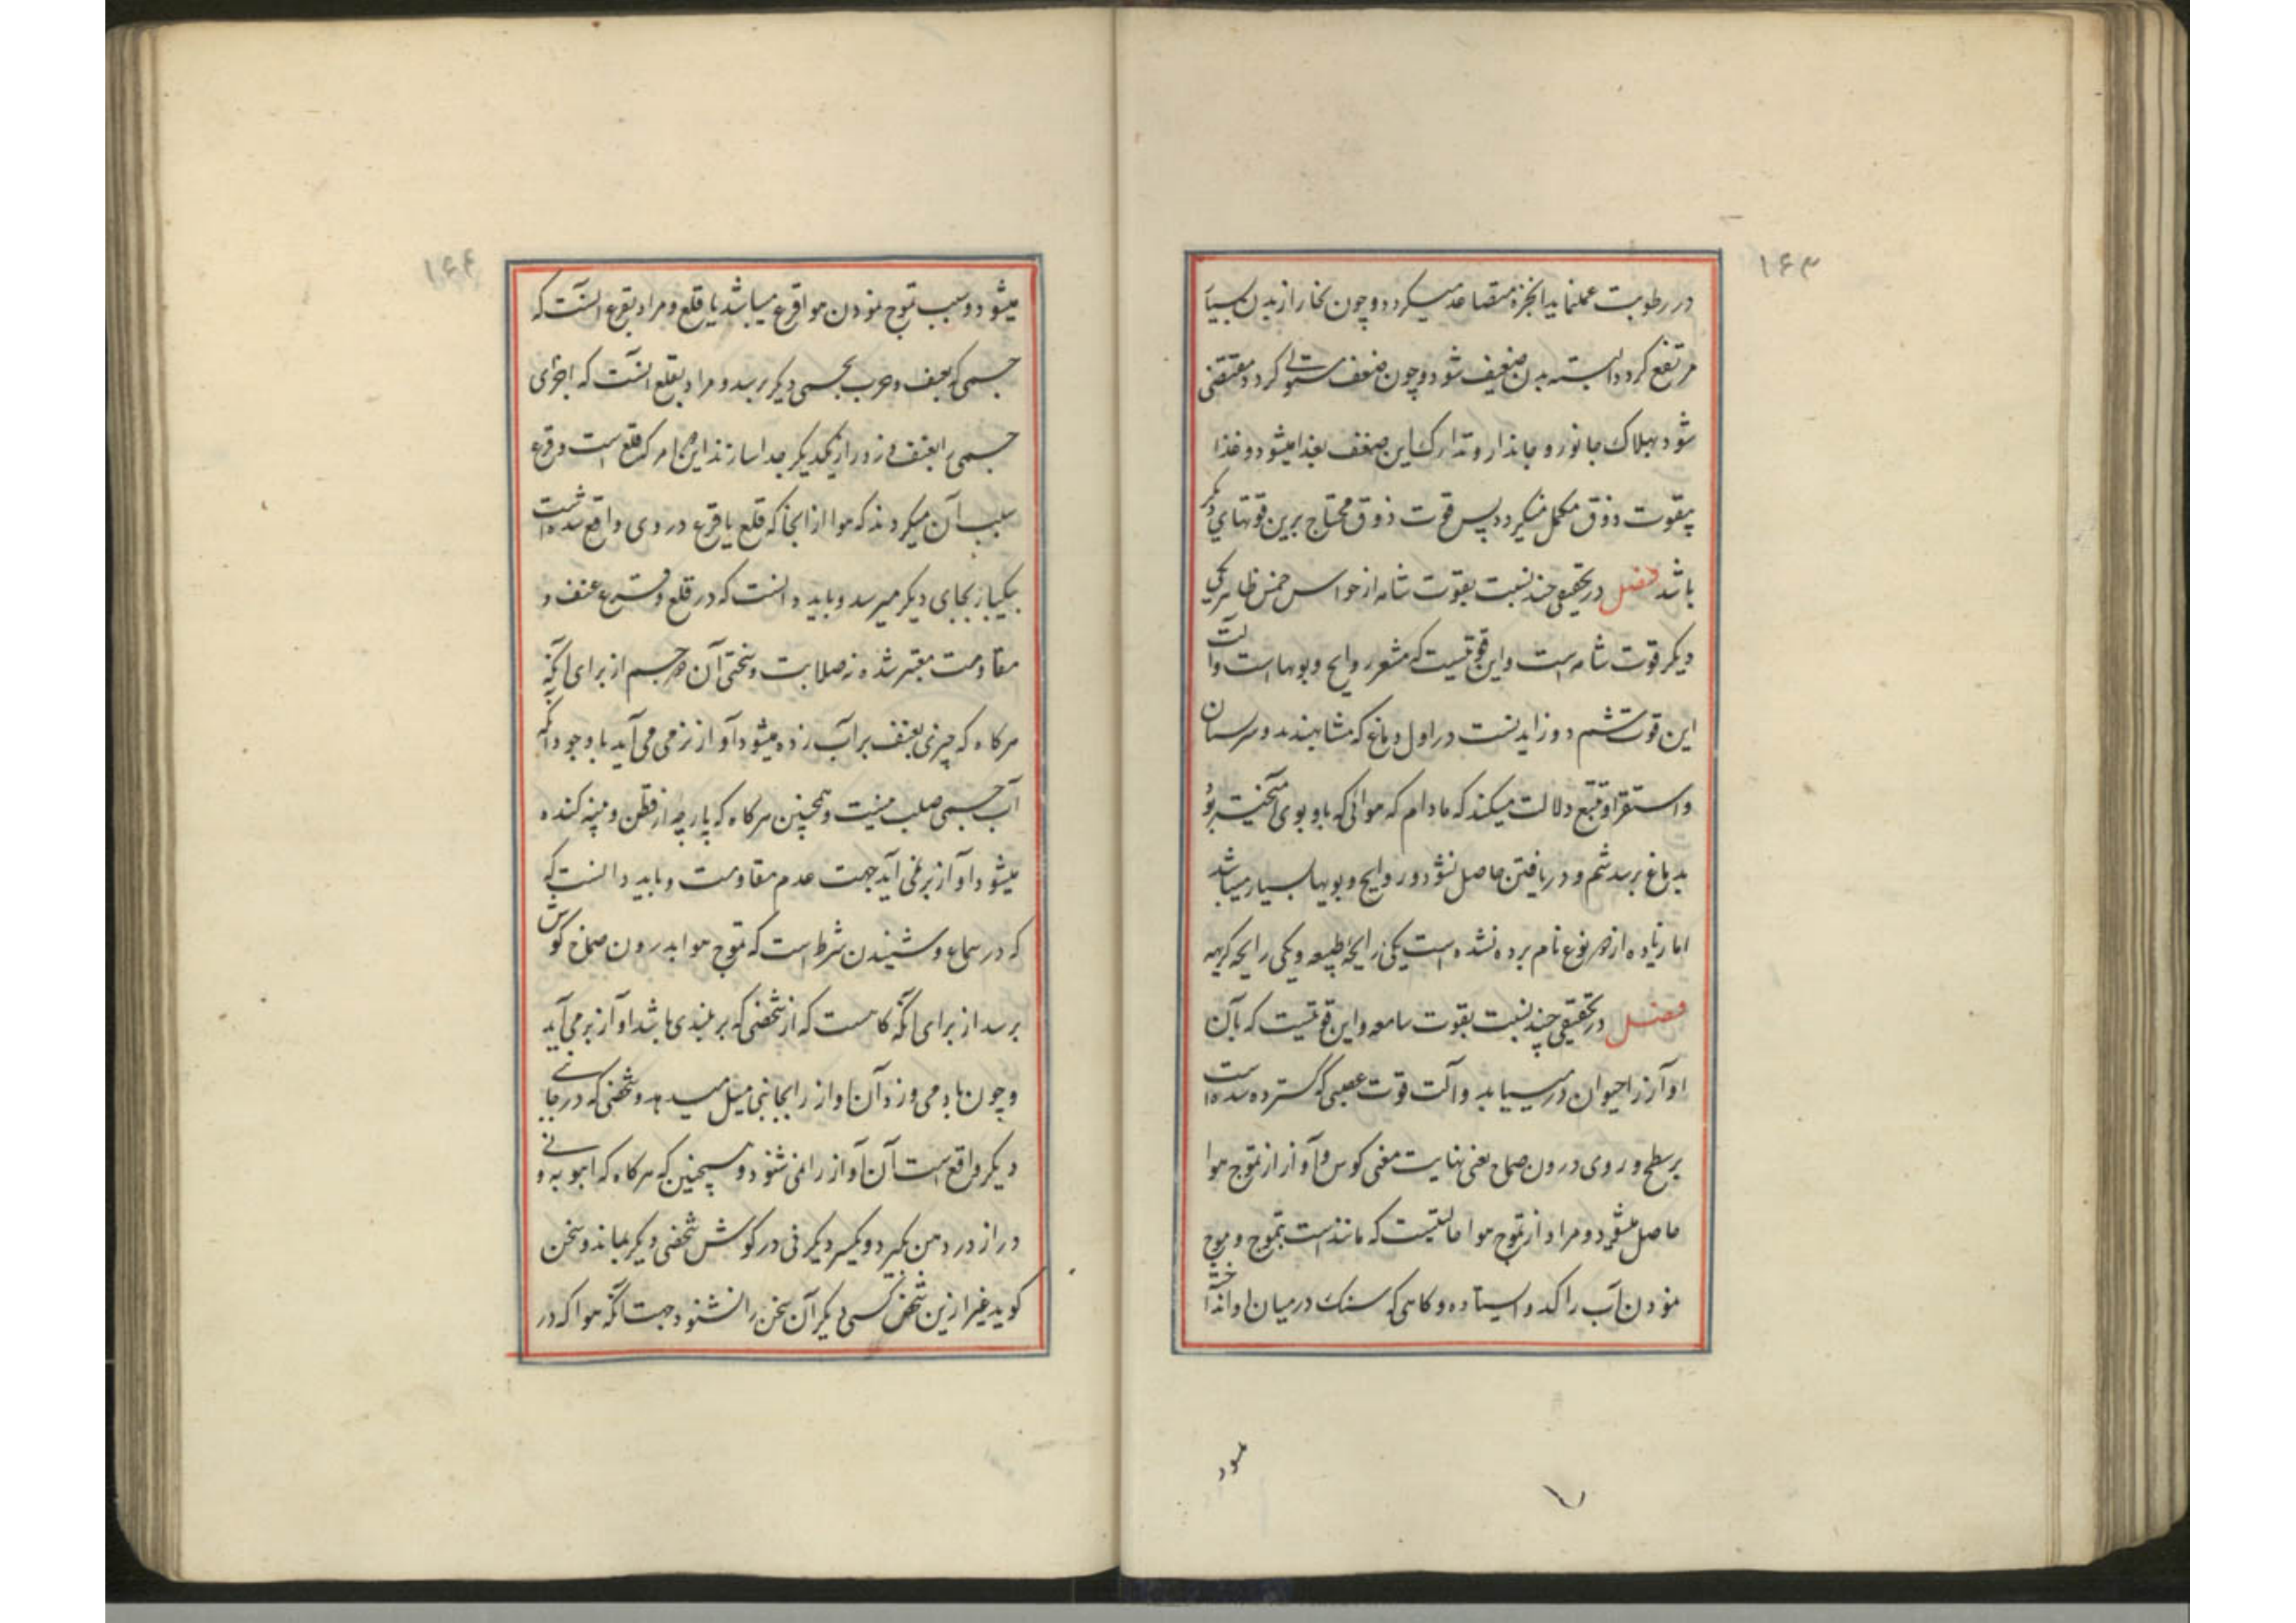 ۱۶۳
در رطوبت عملنماید ابخره متصاعد میکردد و چون بخار از بدن بسیار
مرتفع کردد البته بدن ضعیف شود و چون ضعف مستولی کردد مقتضی
شود بهلاک جانور و جاندار و تدارک این ضعف بغذا میشود و غذا
بقوت ذوق مکمل میکردد پس قوت ذوق محتاج برین قوتهای دیگر
باشد فصل در تحقیقی چند نسبت بقوت شامه از حواس خمس ظاهر یکی
دیکر قوت شامه است و این قوتیست که مشعر روایح و بویها است و آلت
این قوت شم دو زایدتست در اول دماغ که مشابهند بدو سر پستان
و استقرا و تتبع دلالت میکند که مادام که هوائی که باو بوی آمیخته بود
بدماغ نرسد شم و دریافتن حاصل نشود و روایح و بویها بسیار میباشد
اما زیاده از دو نوع نام برده نشده است یکی رایحهٔ طیبه و یکی رایحه کریهه
فصل در تحقیقی چند نسبت بقوت سامعه و این قوتیست که بآن
آواز را حیوان در مییابد و آلت قوت عصبی که گسترده شده است
بر سطح و روی درون صماخ یعنی نهایت مغنی کوش و آواز از تموج هوا
حاصل میشود و مراد از تموج هوا حالتیست که مانند است بتموج و موج
نمودن آب راکد و ایستاده و کاهی که سنک در میان او انداخته
شود
۱۶۴
میشود و سبب تموج نمودن هوا قرع میباشد یا قلع و مراد بقرع آنست که
جسمی که بعنف و ضرب بجسمی دیکر برسد و مراد بقلع آنست که اجزای
جسمی را بعنف و زور از یکدیکر جدا سازند این هنکام که قلع است و قرع
سبب آن میکردند که هوا از آنجا که قلع یا قرع در وی واقع شده است
بیکبار بجای دیکر میرسد و باید دانست که در قلع و قرع عنف و
مقاومت معتبر شده نه صلابت و سختی آن هر دو جسم از برای آنکه
هرکاه که چیزی بعنف بر آب زده میشود آواز نرمی می آید با وجود آنکه
آب جسمی صلب نیست و همچنین هرکاه که پارچه از قطن و پنبه کنده
میشود آواز بر نمی آید جهت عدم مقاومت و باید دانست که
که در سماع و شنیدن شرط است که تموج هوا بدرون صماخ کوش
برسد از برای آنکه کاهست که از شخصی که بر بلندی باشد آواز بر می آید
و چون باد می وزد آن آواز را بجانبی میل میدهد و شخصی که در جانبی
دیکر واقع است آن آواز را نمی شنود و همچنین که هرکاه که انبوبه و نی
دراز در دهن بکیرد و یکسر دیکر نی در کوش شخصی دیکر بماند و سخن
کوید غیر ازین شخص کسی دیکر آن سخن را نشنود جهت آنکه هوا که در